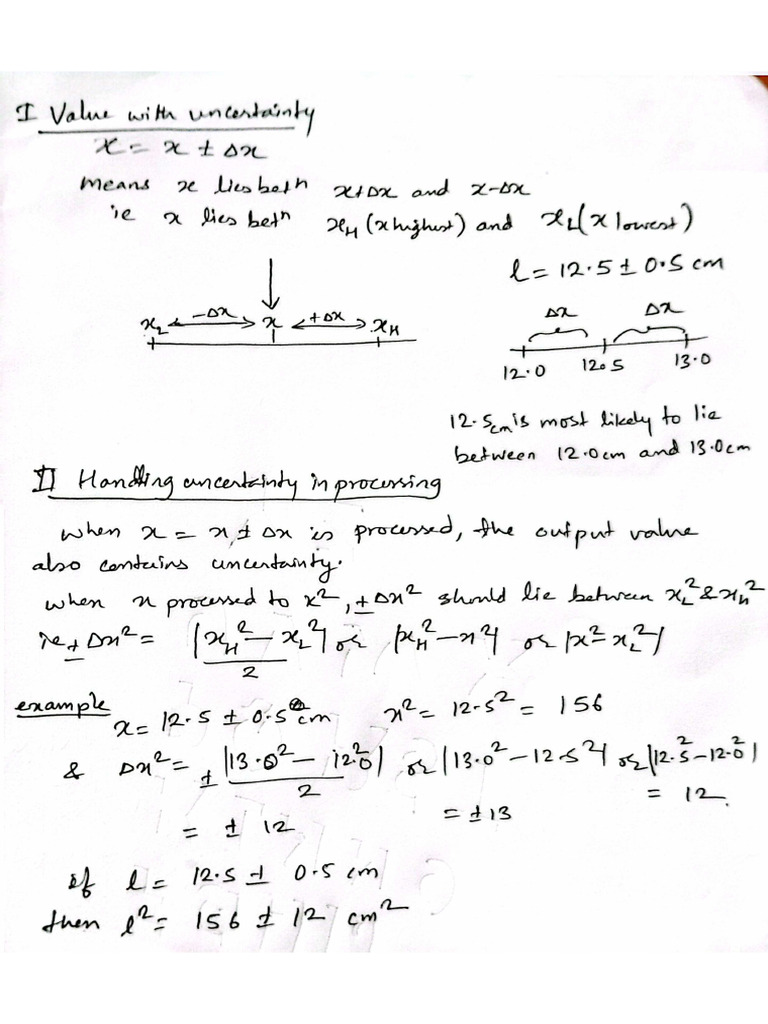 I Value with uncertainty
x = x ± Δx
means x lies betn x+Δx and x-Δx
ie x lies betn xH (x highest) and xL (x lowest)
l = 12.5 ± 0.5 cm
-Δx +Δx
xL x xH
Δx Δx
12.0 12.5 13.0
12.5cm is most likely to lie
between 12.0cm and 13.0cm
II Handling uncertainty in processing
when x = x ± Δx is processed, the output value
also contains uncertainty.
when x processed to x², ±Δx² should lie between xL² & xH²
ie ±Δx² = |xH² - xL²|/2 or |xH² - x²| or |x² - xL²|
example
x = 12.5 ± 0.5 cm x² = 12.5² = 156
& Δx² = ± |13.0² - 12.0²|/2 or |13.0² - 12.5²| or |12.5² - 12.0²|
= ± 12 = ±13 = 12.
If l = 12.5 ± 0.5 cm
then l² = 156 ± 12 cm²